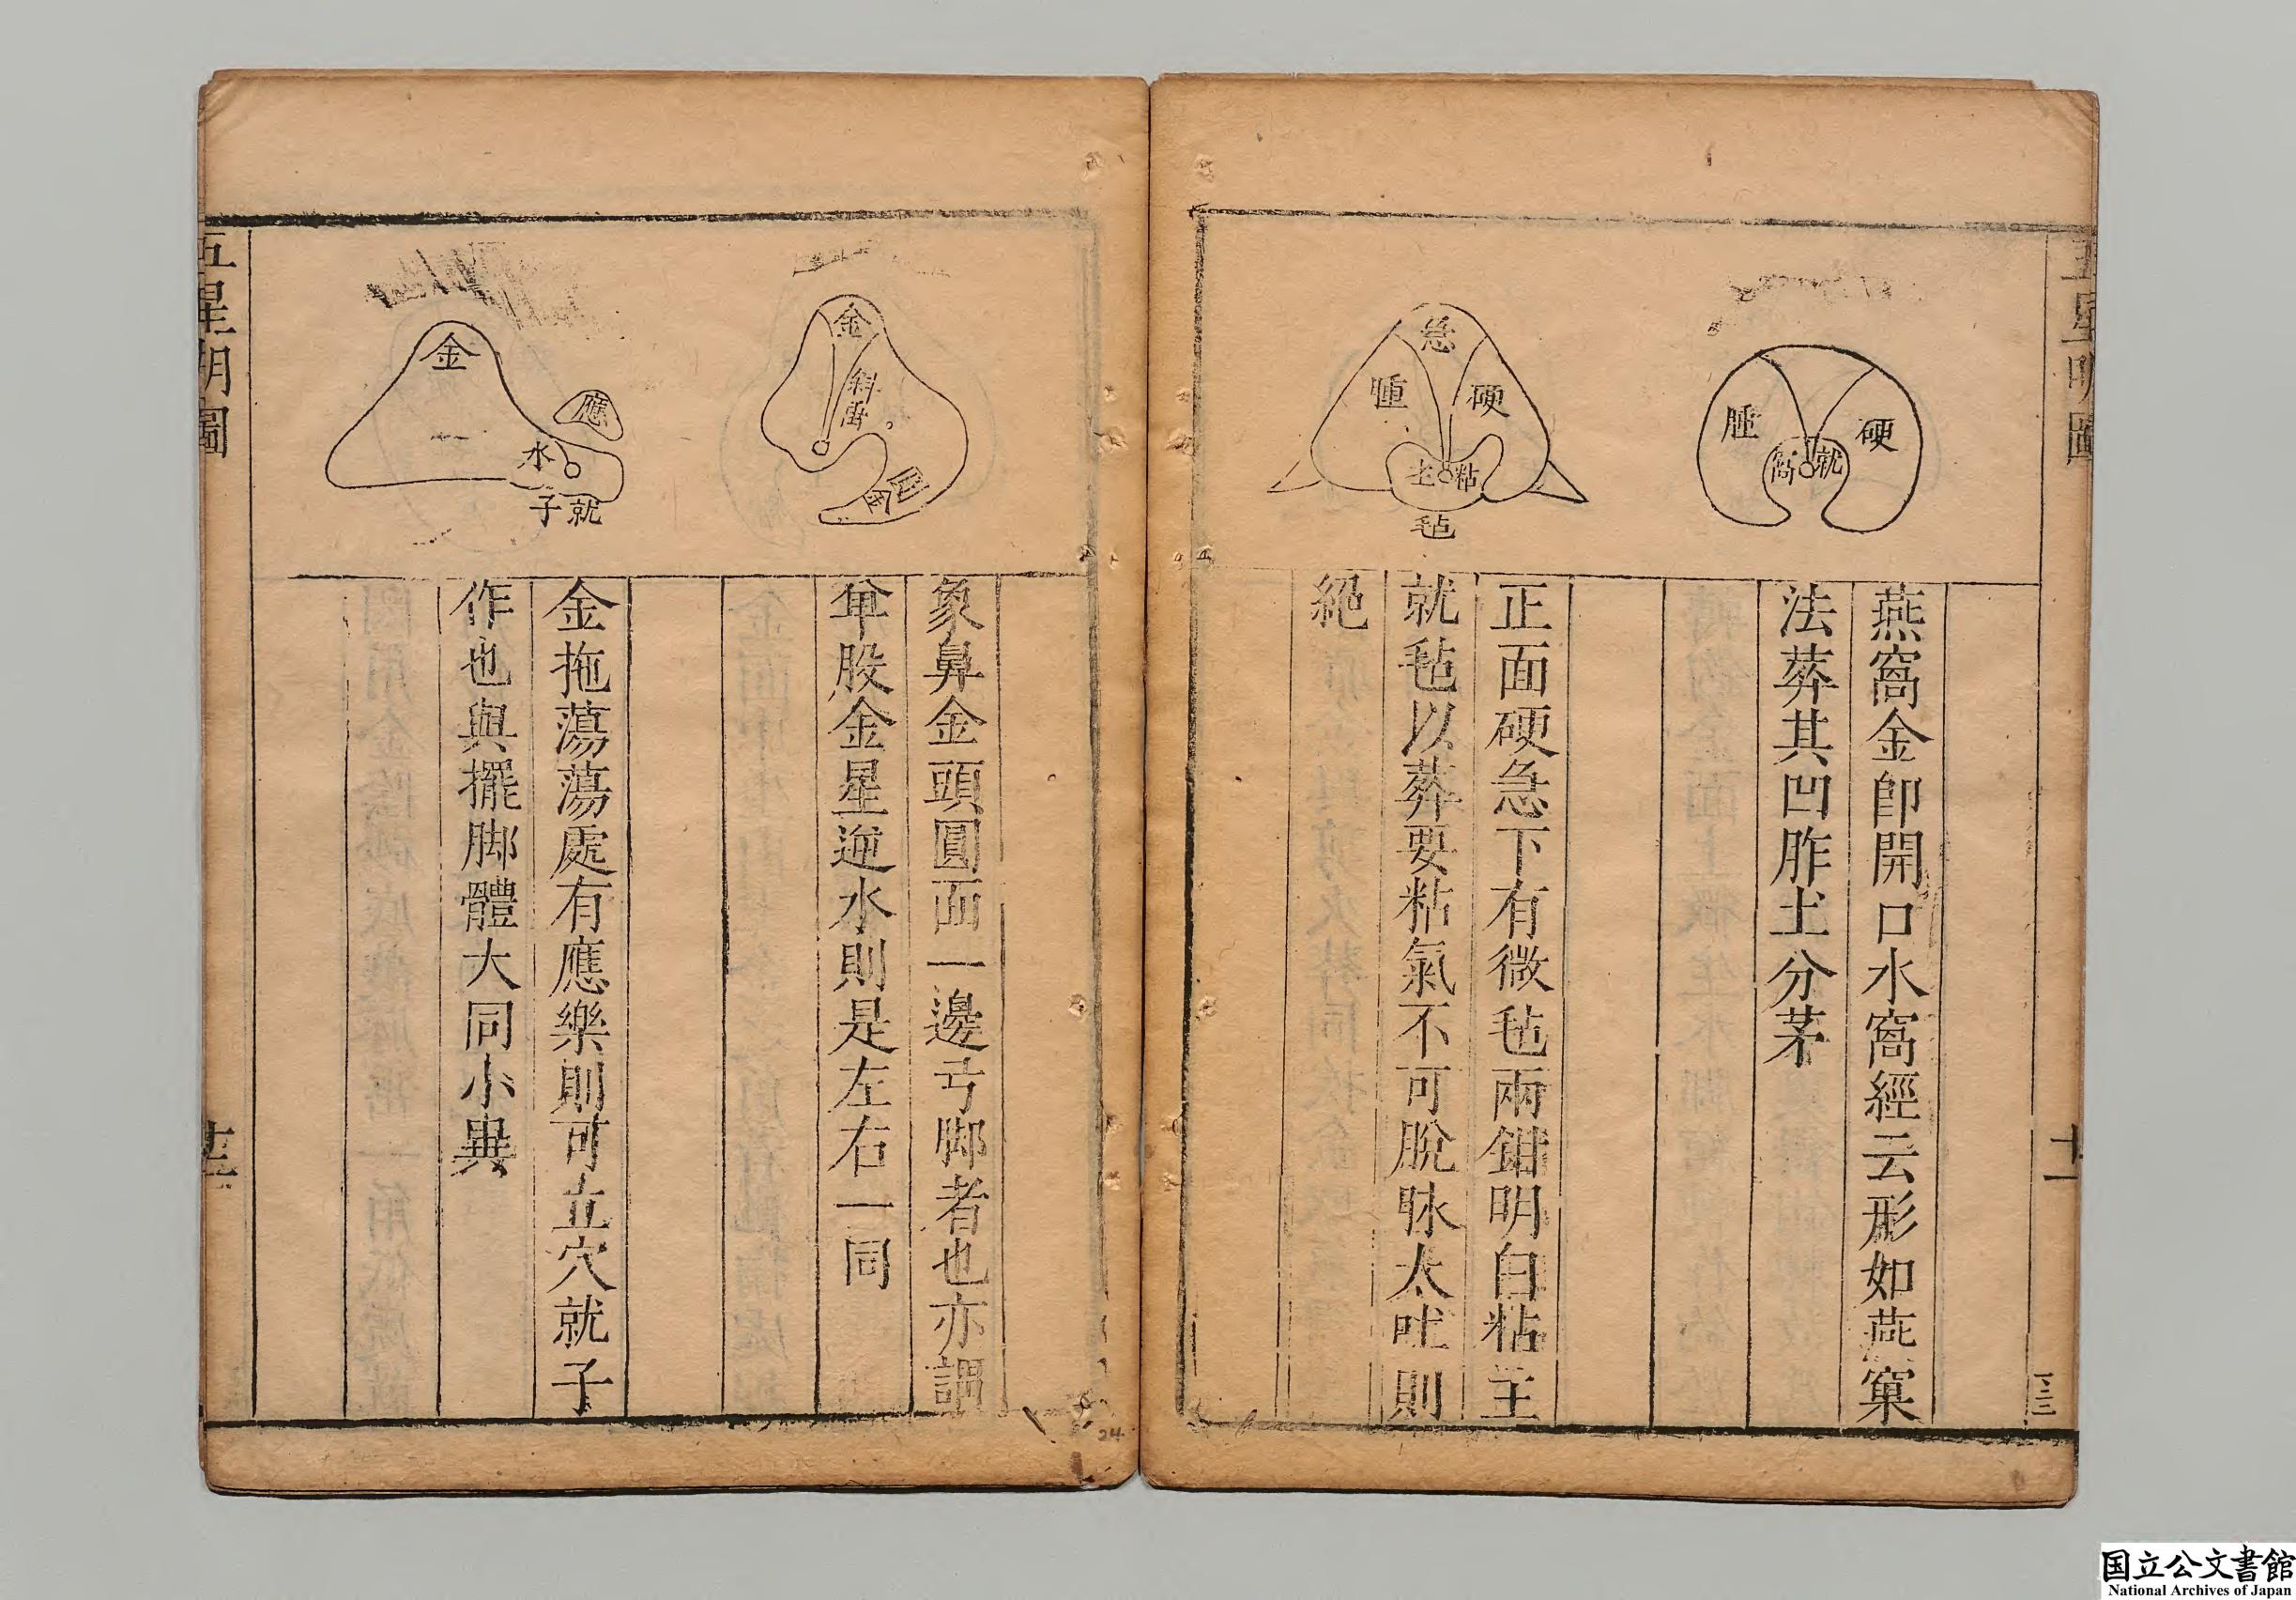 五星明圖
十一
硬
腫
就
窩
燕窩金即開口水窩經云形如燕窠
法葬其凹胙土分茅
急
硬
腫
粘
主
毡
正面硬急下有微毡兩鉗明白粘主
就毡以葬要粘氣不可脫脉太吐則
絕
金
象鼻金頭圓面一邊弓脚者也亦謂
單股金星逆水則是左右一同
金
應
水
就子
金拖蕩蕩處有應樂則可立穴就子
作也與擺脚體大同小異
五星明圖
国立公文書館
National Archives of Japan
24